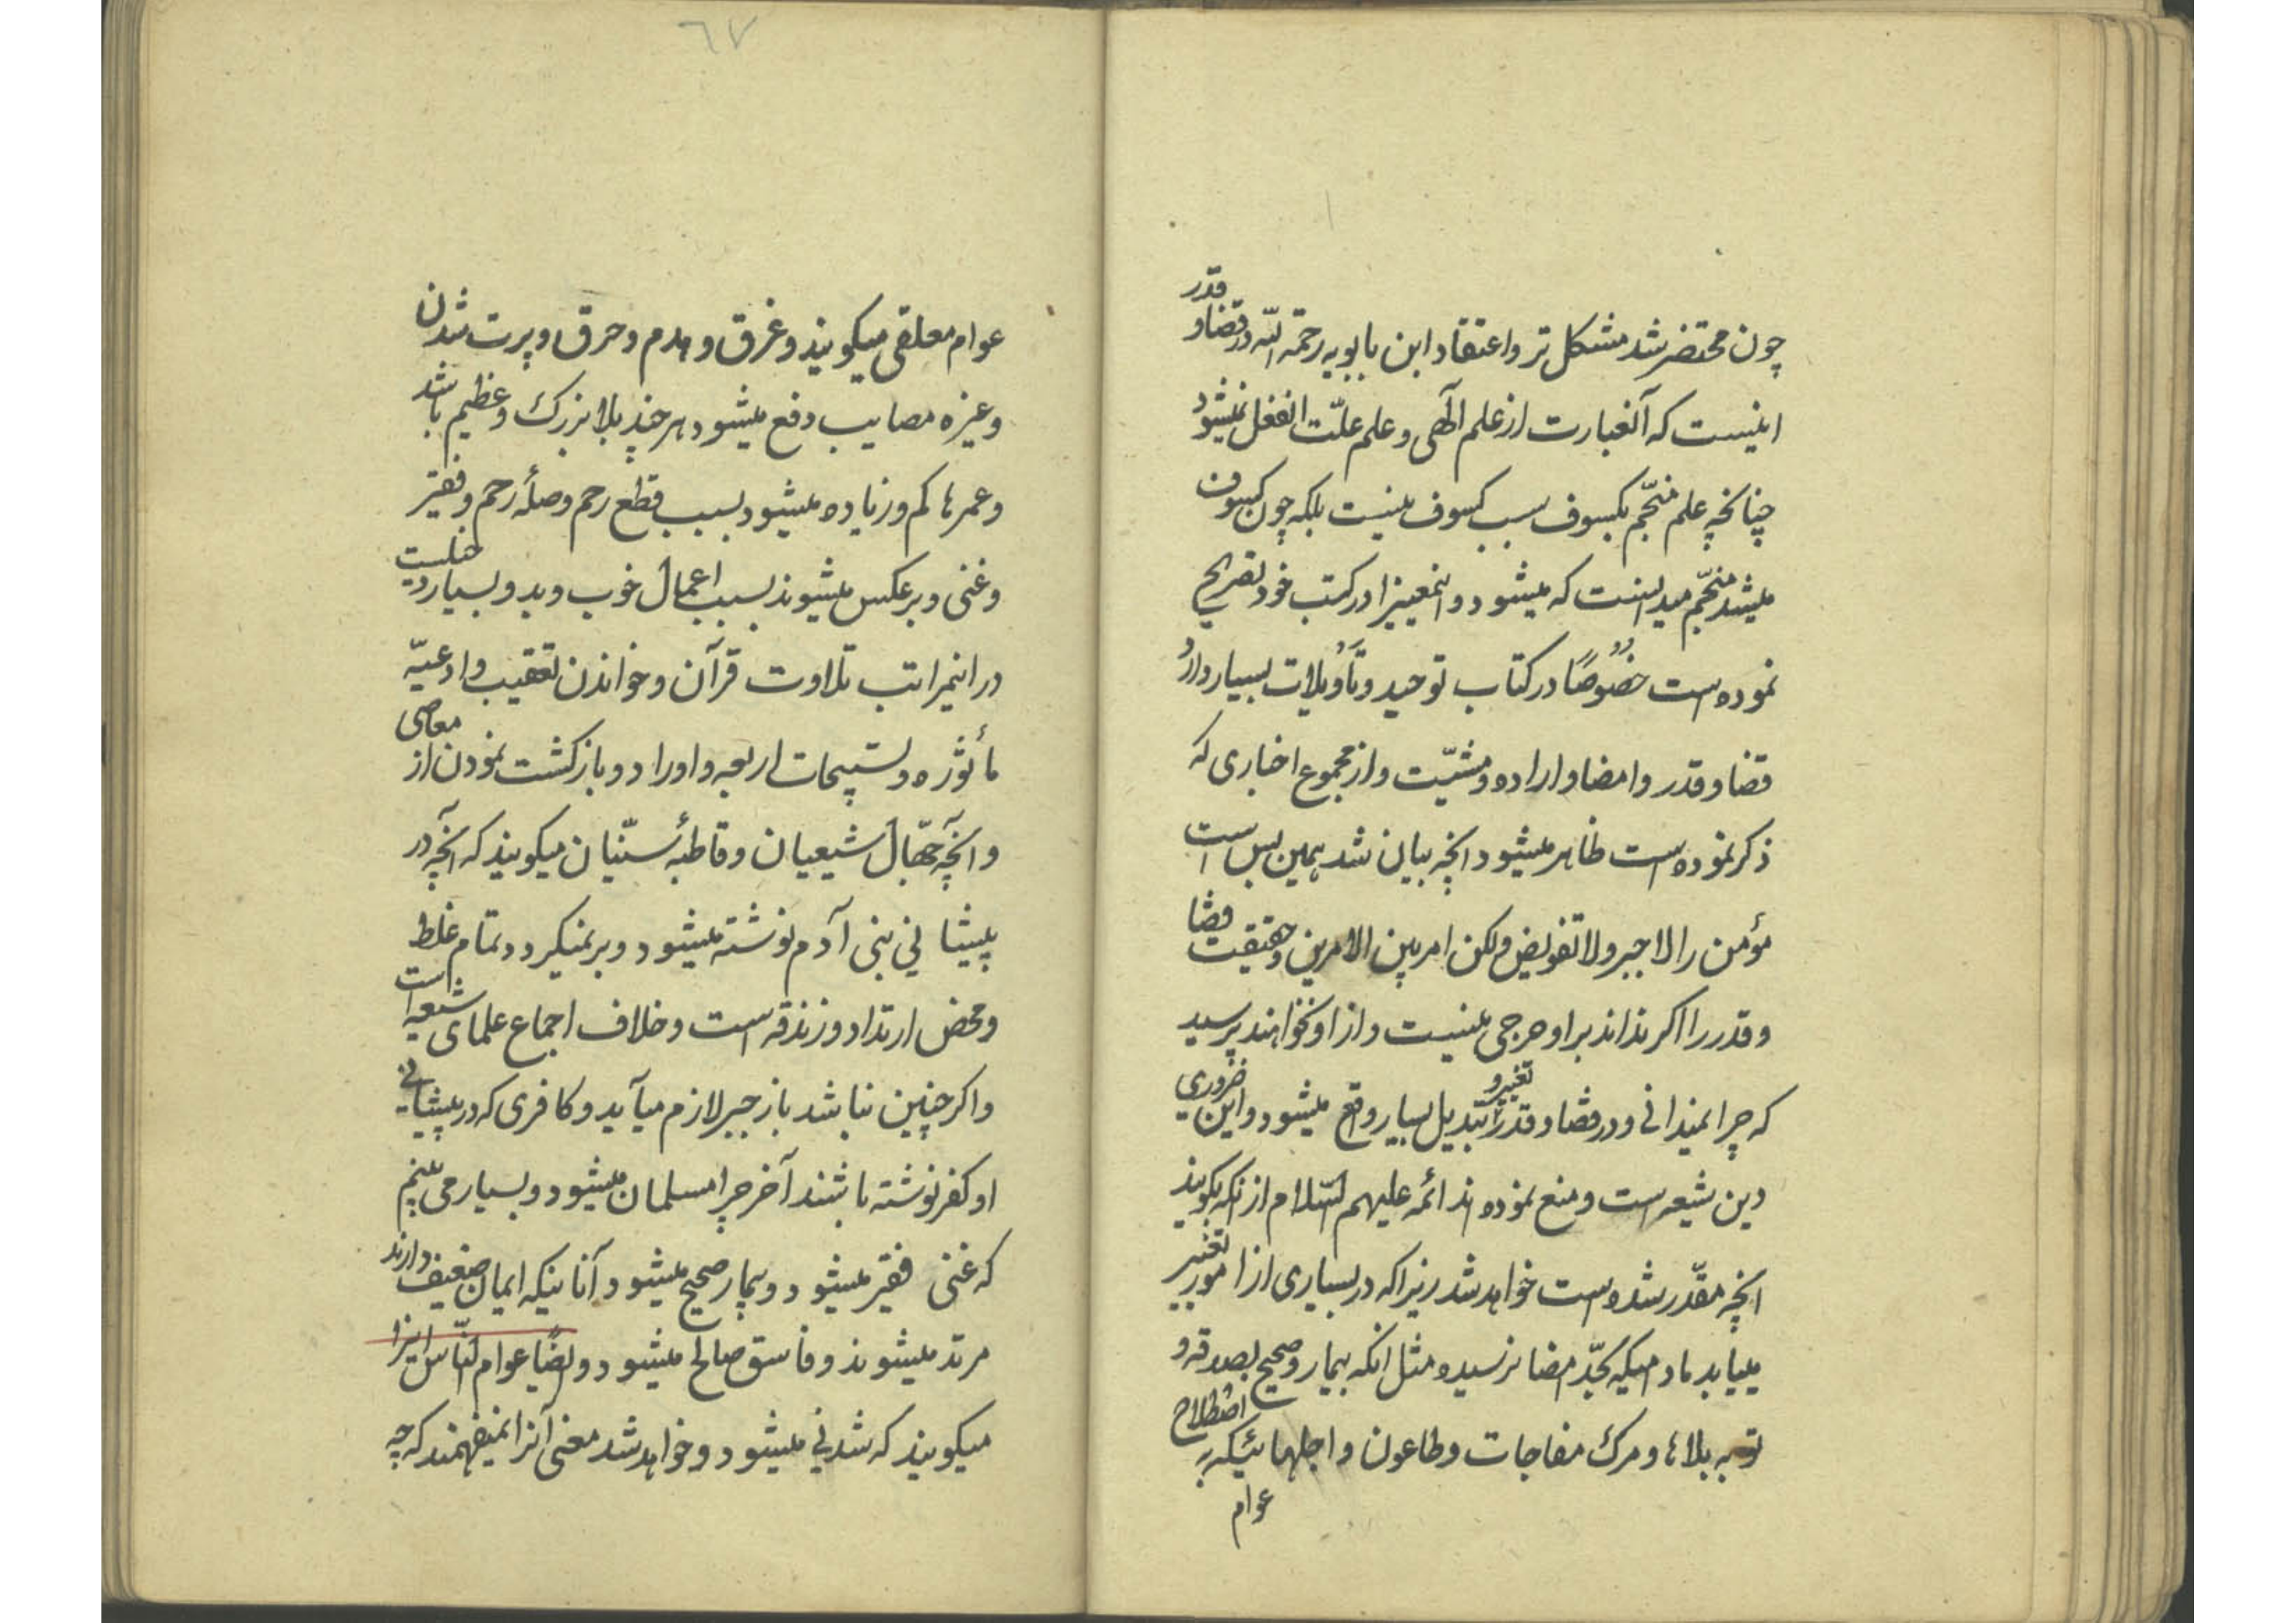 چون محتضر شد مشکل تر و اعتقاد ابن بابویه رحمة الله در قضا و قدر
اینیست که آنعبارت از علم آلهی و علم علّت انفعل نمیشود
چنانخچه علم منجّم بکسوف سبب کسوف نیست بلکه چون کسوف
میشد منجّم میدانست که میشود و انمعنیرا در کتب خود تصریح
نموده است خصُوصًا در کتاب توحید و تأویلات بسیار دارد
قضا و قدر و امضا و اراده و مشیّت و از مجموع اخباری که
ذکر نموده است ظاهر میشود انچه بیان شد همین بس است
مؤمن را لا جبر ولا تفویض ولکن امر بین الامرین و حقیقت قضا
و قدر را اکر نداند بر او حرجی نیست و از او نخواهند پرسید
که چرا نمیدانی و در قضا و قدر تغییر و تبدیل بسیار واقع میشود و این ضروری
دین شیعه است و منع نموده اند ائمه علیهم السّلام از انکه بکویند
انچه مقدّر شده است خواهد شد زیرا که در بسیاری از امور تغییر
مییابد مادامیکه بحدّ امضا نرسیده مثل انکه بیمار و صحیح بصدقه و
توبه بلاها و مرک مفاجات و طاعون و اجلهائیکه به اصطلاح
عوام
٦٧
عوام معلقی میکویند و غرق و هدم و حرق و پرت شدن
و غیره مصایب دفع میشود هر چند بلا بزرک و عظیم باشد
و عمرها کم و زیاده میشود بسبب قطع رحم و صلهٔ رحم و فقیر
و غنی و برعکس میشوند بسبب اعمال خوب و بد و بسیار
در اینمراتب تلاوت قرآن و خواندن تعقیب و ادعیّه
مأثوره و تسبیحات اربعه و اوراد و بازکشت نمودن از معاصی
و آنچه جهّال شیعیان و قاطبهٔ سنّیان میکویند که آنچه در
پیشانی بنی آدم نوشته میشود و بر نمیکردد تمام غلط است
و محض ارتداد و زندقه است و خلاف اجماع علمای شیعه
و اکر چنین نباشد باز جبر لازم میآید و کافری که در پیشانی
او کفر نوشته باشند آخر چرا مسلمان میشود و بسیار می بینم
که غنی فقیر میشود و بیمار صحیح میشود آنانیکه ایمان ضعیف دارند
مرتد میشوند و فاسق صالح میشود و ایضًا عوام النّاس اینرا
میکویند که شدنی میشود و خواهد شد معنی آنرا نمیفهمند که چه